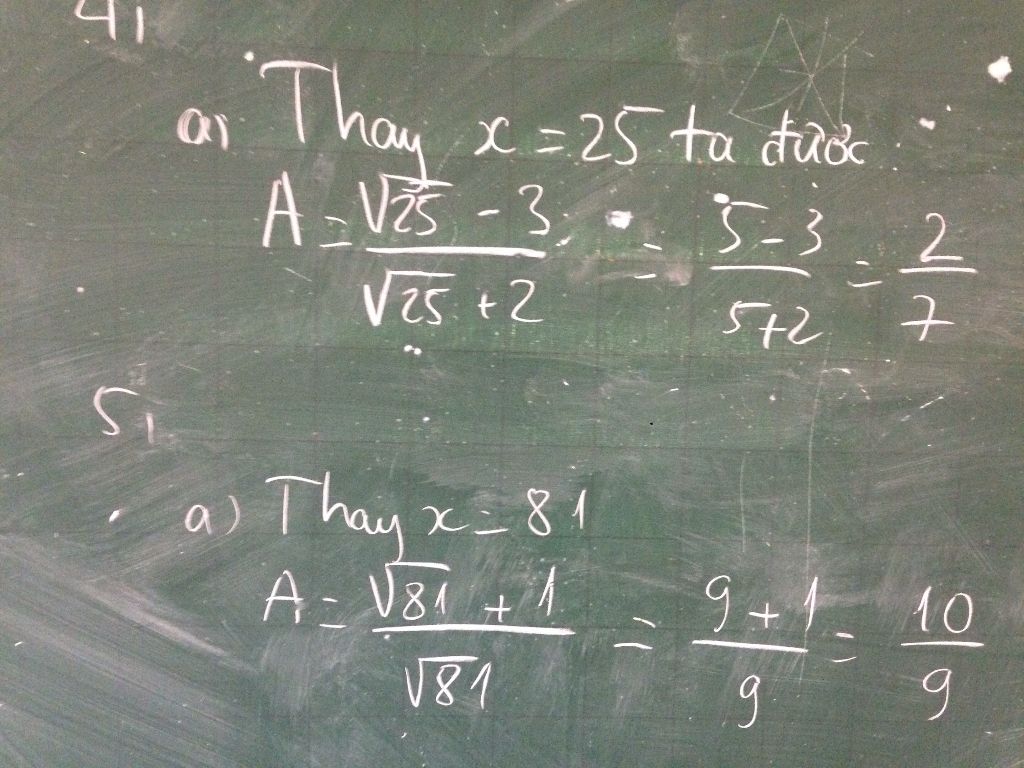 4,
a, Thay x = 25 ta được
A = √25 - 3 / √25 + 2 = 5 - 3 / 5 + 2 = 2 / 7
5,
a) Thay x = 81
A = √81 + 1 / √81 = 9 + 1 / 9 = 10 / 9